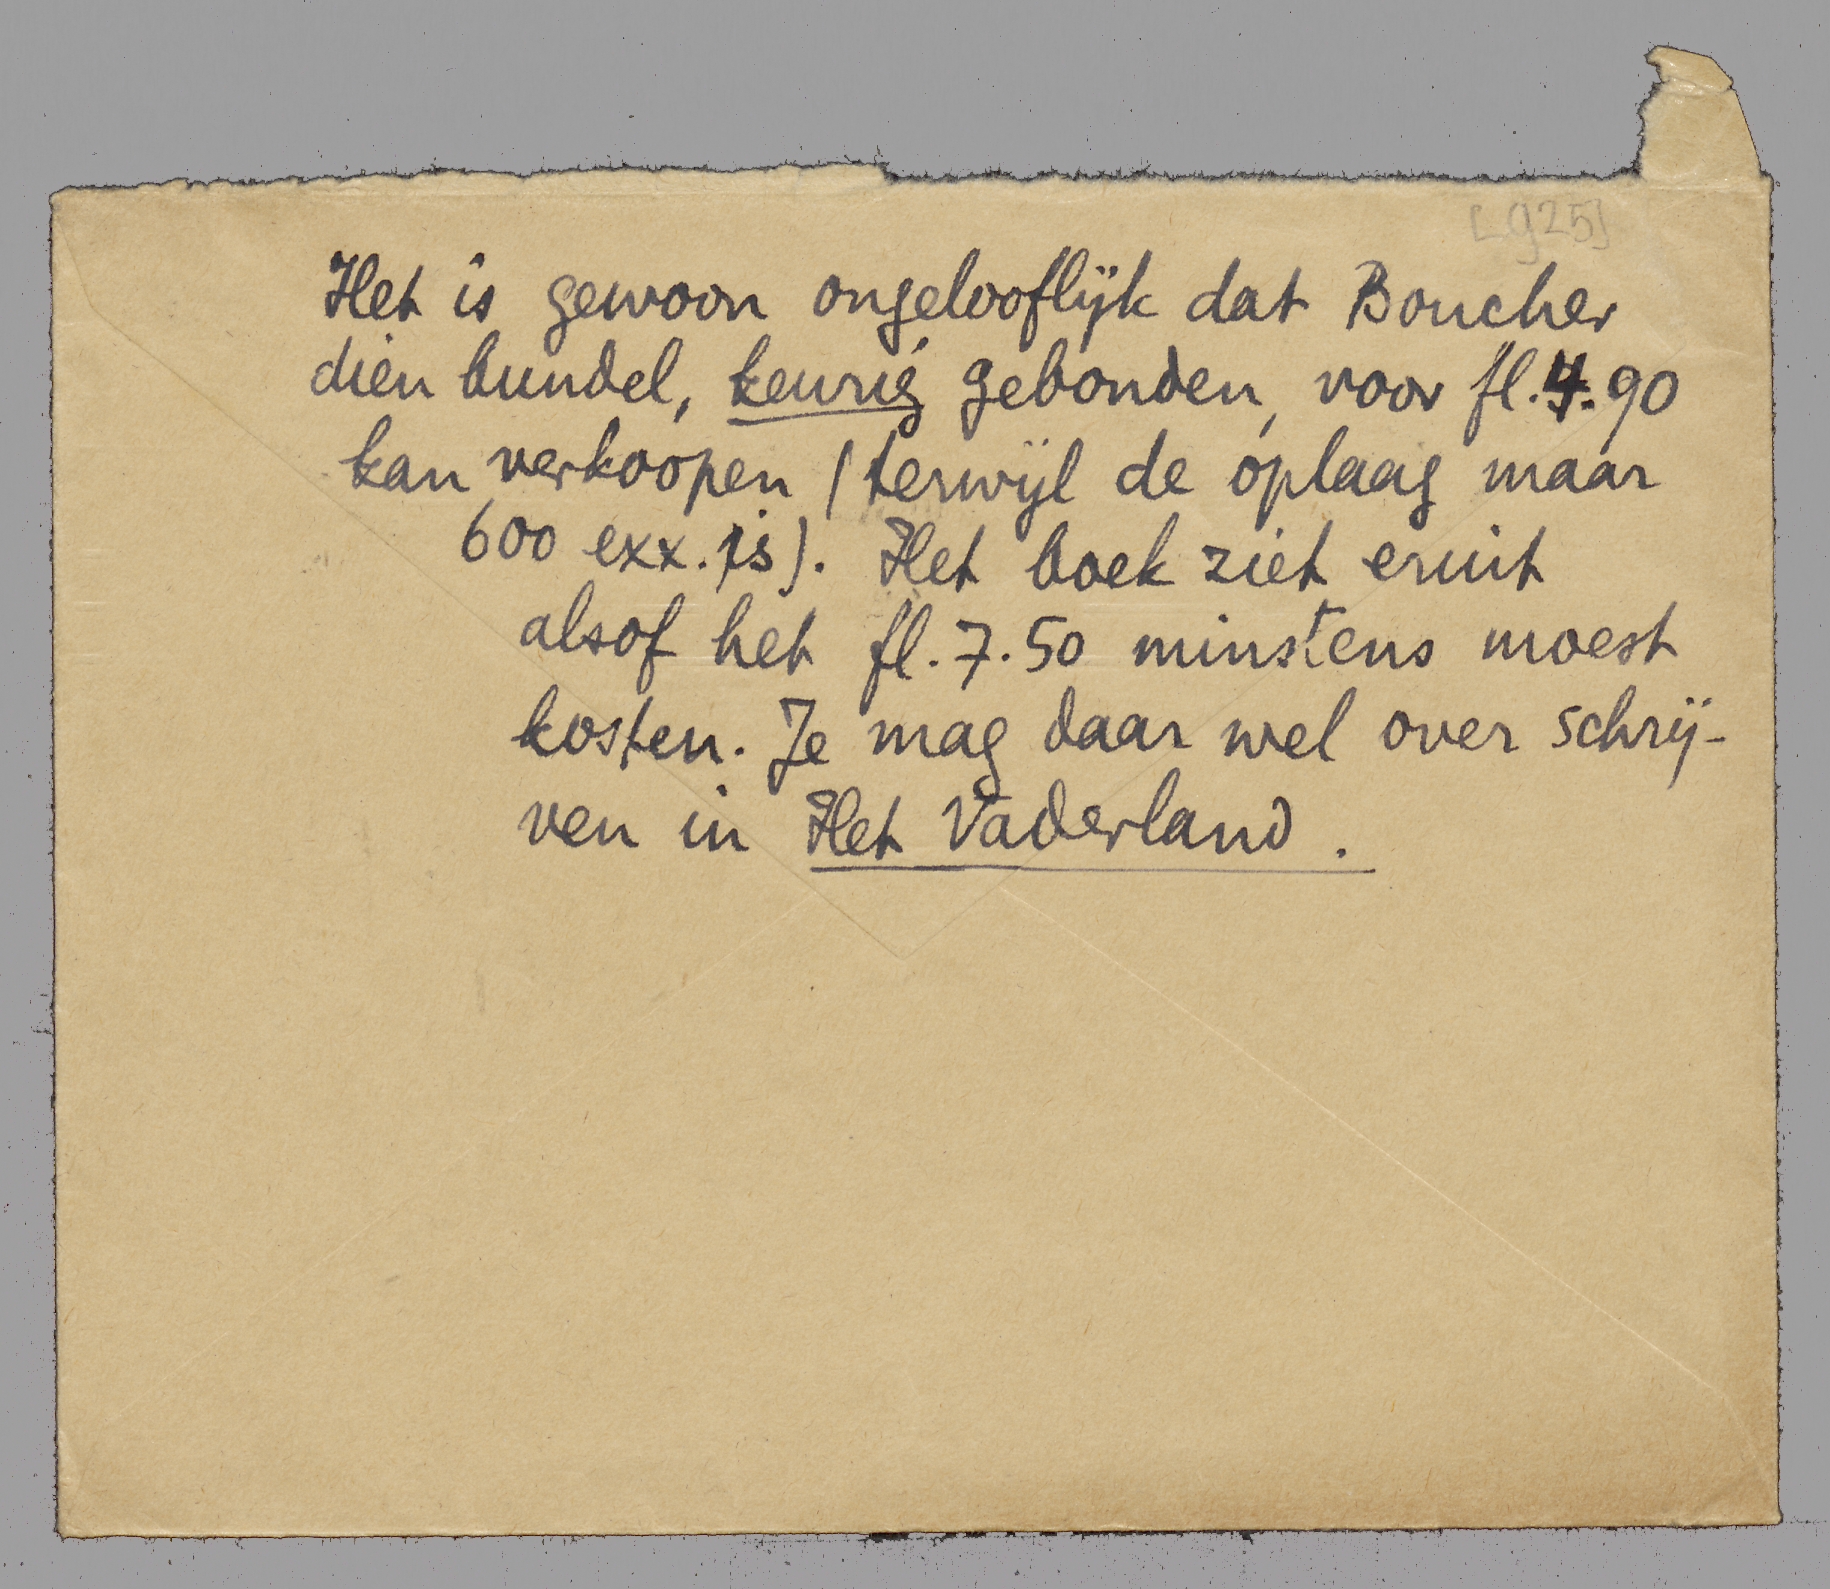 [925]
Het is gewoon ongelooflijk dat Boucher
dien bundel, keurig gebonden, voor fl.4.90
kan verkoopen (terwijl de oplaag maar
600 exx. is). Het boek ziet eruit
alsof het fl.7.50 minstens moest
kosten. Je mag daar wel over schrij-
ven in Het Vaderland.